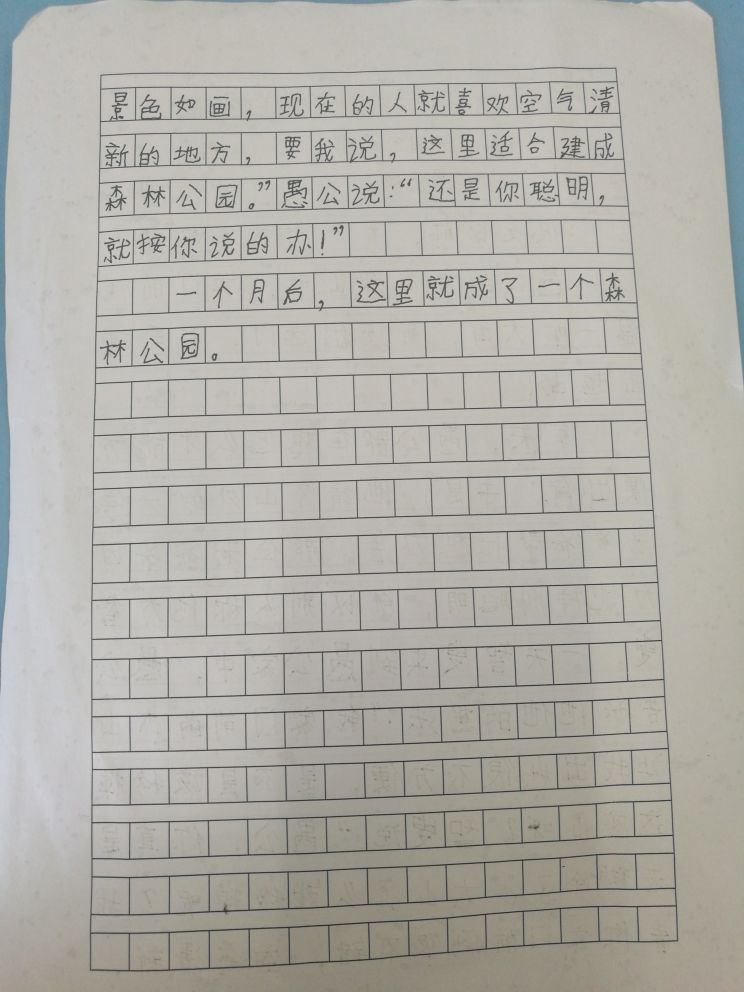 景色如画，现在的人就喜欢空气清
新的地方，要我说，这里适合建成
森林公园。”愚公说：“还是你聪明，
就按你说的办！”
一个月后，这里就成了一个森
林公园。